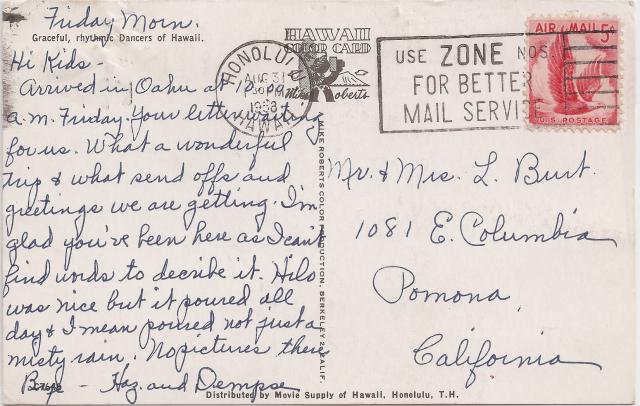 Friday Morn.
Graceful, rhythmic Dancers of Hawaii.
Hi Kids -
Arrived in Oahu at 12:00
a.m. Friday. Your letter waiting
for us. What a wonderful
trip & what send offs and
greetings we are getting. I'm
glad you've been here as I can't
find words to decribe it. Hilo
was nice but it poured all
day & I mean poured not just a
misty rain. No pictures there
Bye - Haz. and Dempse
HAWAII
COLOR CARD
Mike Roberts
HONOLULU
AUG 31
1958
HAWAII
USE ZONE NOS.
FOR BETTER
MAIL SERVICE
AIR MAIL 5¢
U.S. POSTAGE
MIKE ROBERTS COLOR PRODUCTION, BERKELEY 2, CALIF.
Mr. & Mrs. L. Burt.
1081 E. Columbia
Pomona,
California
Distributed by Movie Supply of Hawaii, Honolulu, T.H.